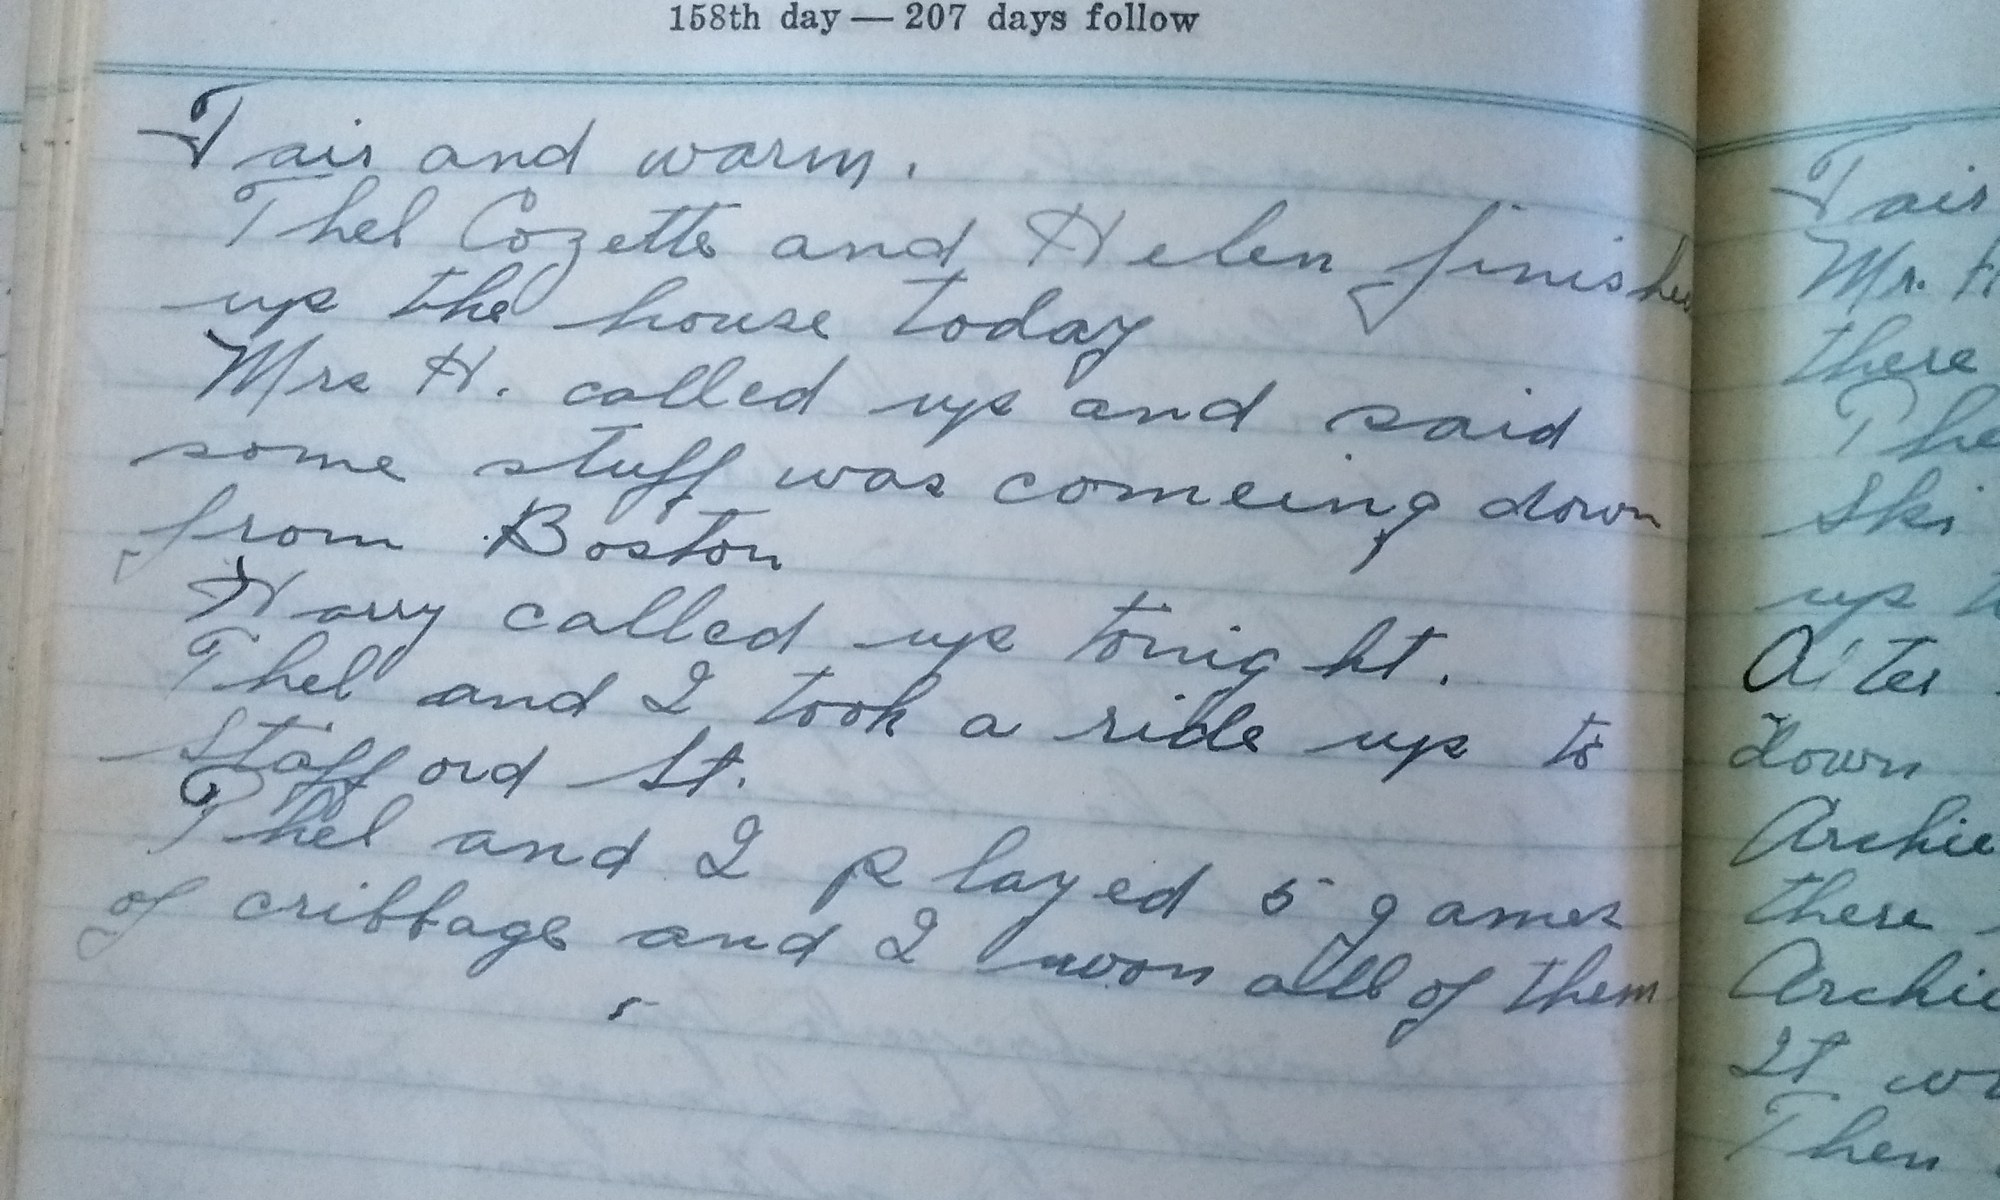 158th day — 207 days follow
Fair and warm.
Thel Cozette and Helen finished
up the house today
Mrs H. called up and said
some stuff was comeing down
from Boston
Harry called up tonight.
Thel and I took a ride up to
Stafford St.
Thel and I played 5 games
of cribbage and I won all of them
Fair
Mr. H
there
The
Ski
up
down
Archie
there
Archie
It
Then